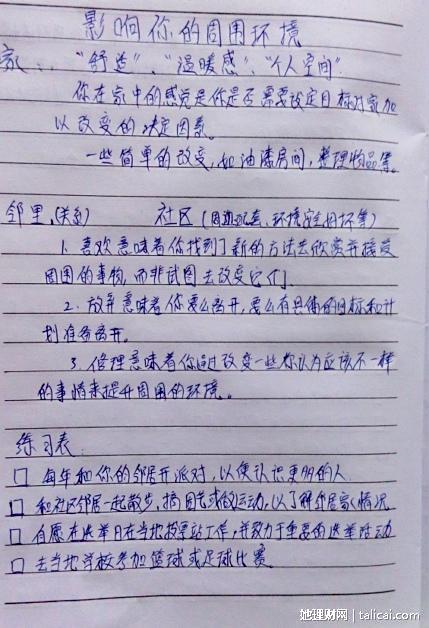 影响你的周围环境
家：“舒适”、“温暖感”、“个人空间”
你在家中的感觉是你是否需要设定目标对家加
以改变的决定因素。
一些简单的改变，如油漆房间，整理物品等。
邻里（关系） 社区（周边配套、环境安全好坏等）
1. 喜欢意味着你找到了新的方法去欣赏并接受
周围的事物，而非试图去改变它们。
2. 放弃意味着你要么离开，要么有具体的目标和计
划准备离开。
3. 修理意味着你通过改变一些你认为应该不一样
的事情来提升周围的环境。
练习表
□ 每年和你的邻居开派对，以便认识更多的人
□ 和社区邻居一起散步，搞团艺或做运动，以了解邻居家情况
□ 自愿在选举日在当地投票站工作，并致力于重要的选举活动
□ 去当地学校参加篮球或足球比赛
她理财网 | talicai.com